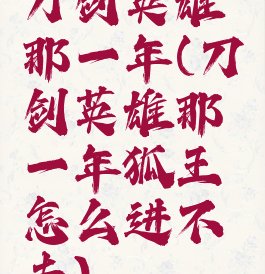 刀剑英雄
那一年(刀
剑英雄那
一年狐王
怎么进不
去)